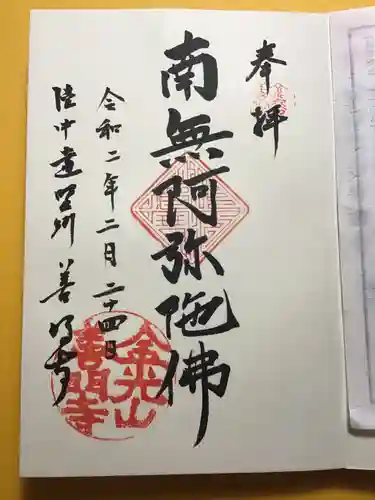 奉拝
南無阿弥陀佛
令和二年二月二十四日
陸中遠野州 善明寺
金光山
善明寺